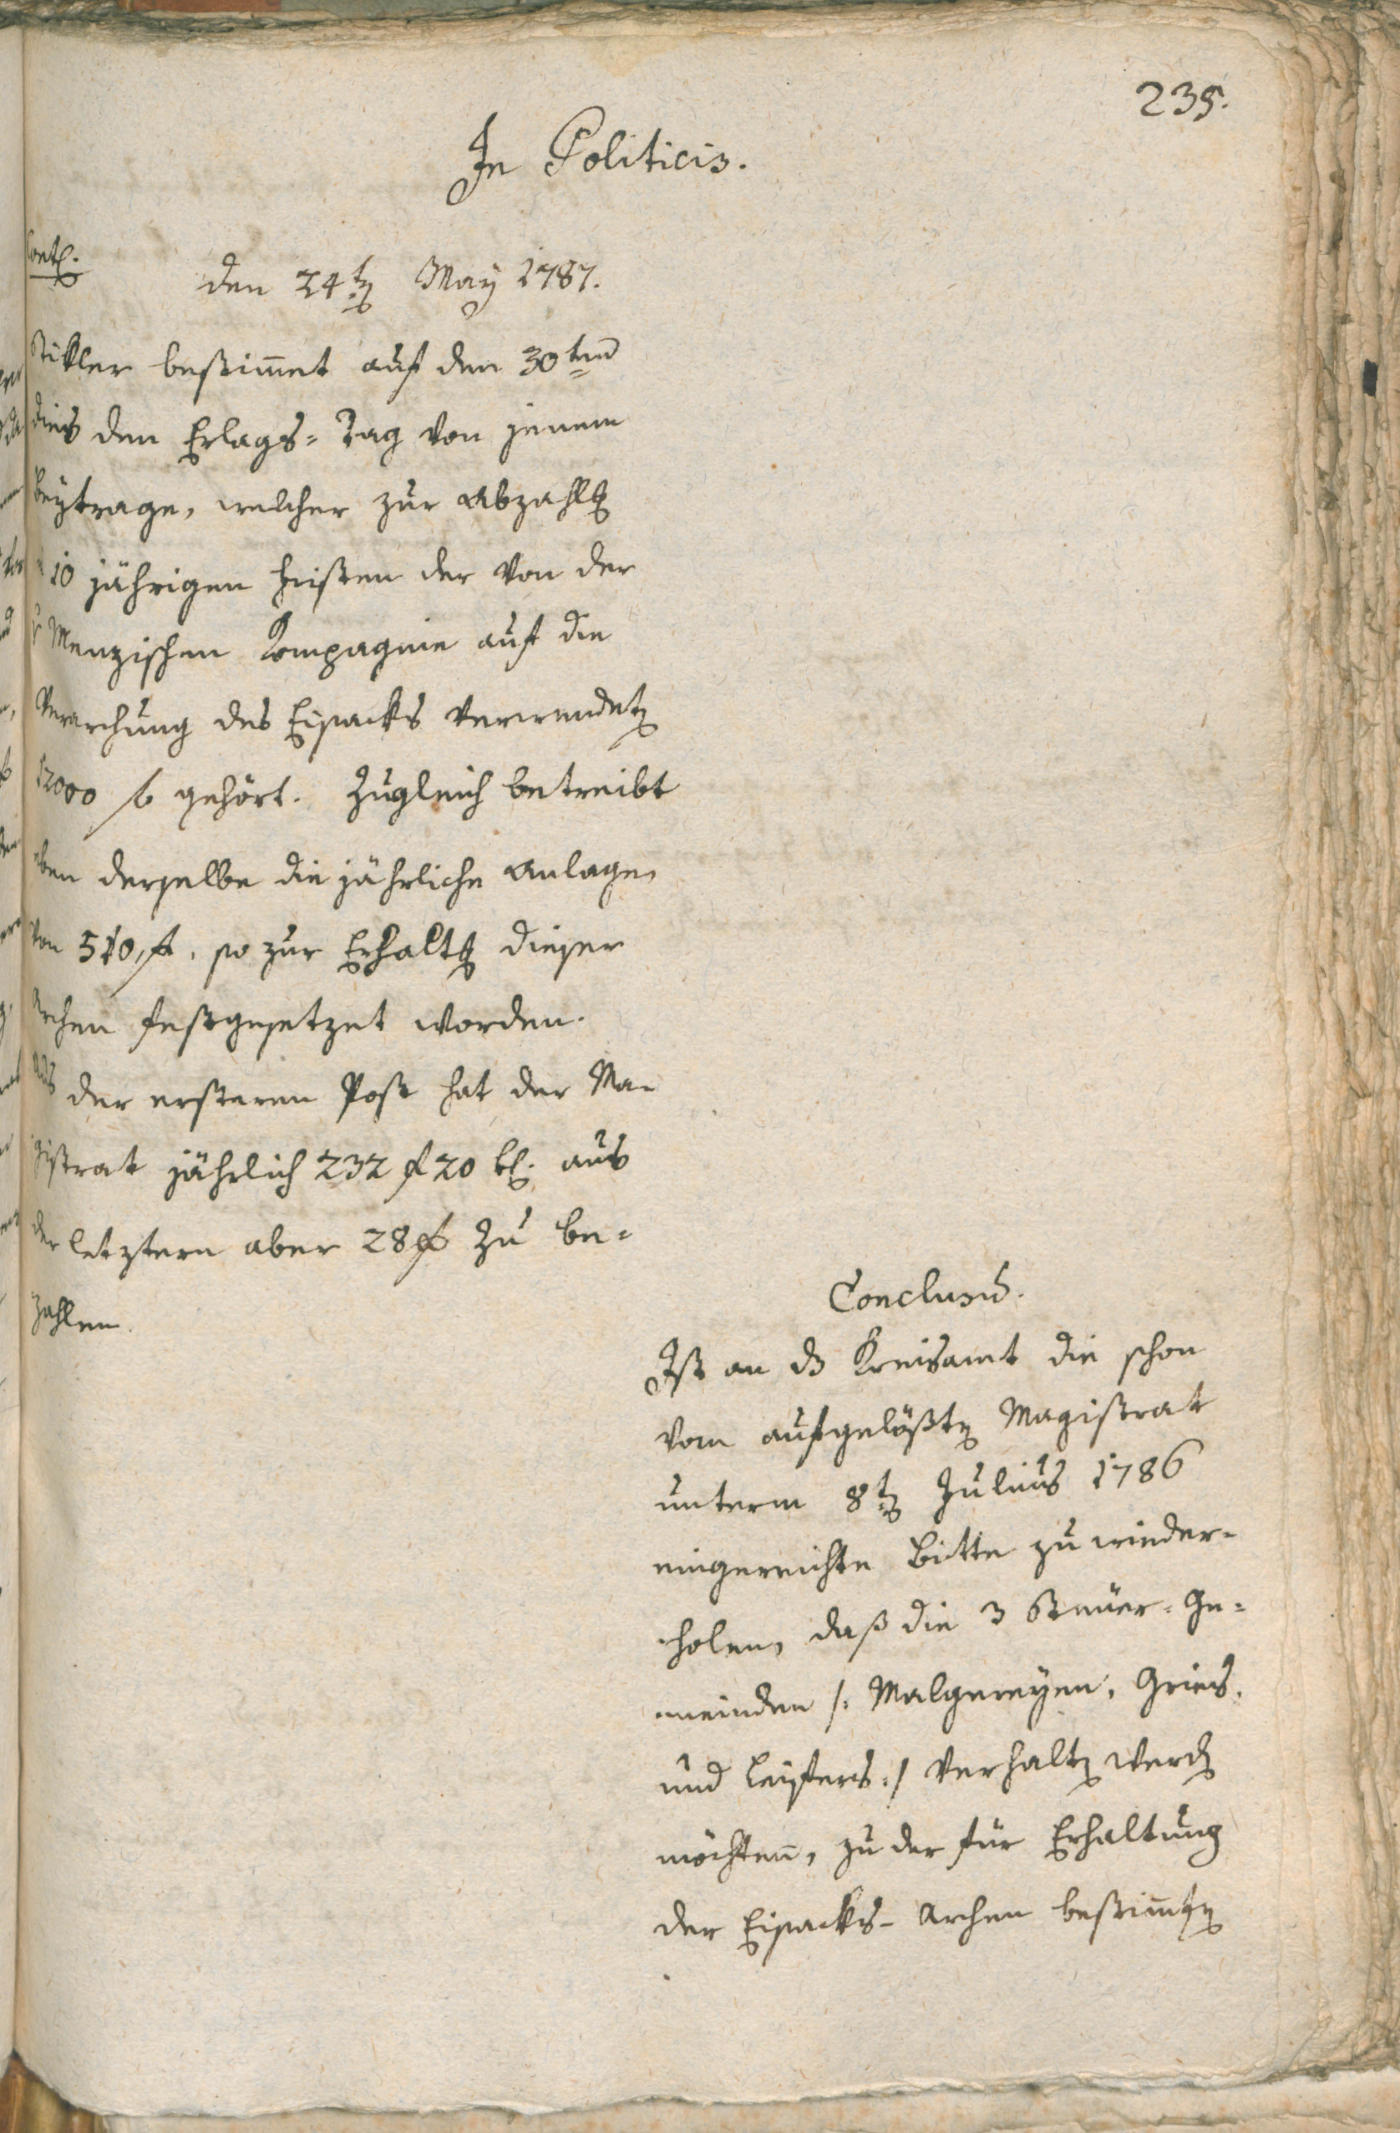 235.
In Politicis.
Cont.
den 24t May 1787.
Stikler bestimet auf den 30ten
dies den Erlags-Tag von jenem
Beytrage, welcher zur Abzahlg
10 jährigen Fristen der von der
Menzischen Compagnie auf die
Verarchung des Eisacks verwendete
12000 f gehört. Zugleich betreibt
eben derselbe die jährliche Anlage
von 510 f, so zur Erhaltg dieser
Archen festgesetzet worden.
Aus der ersteren Post hat der Ma-
gistrat jährlich 232 f 20 k. aus
der letztern aber 28 f zu be-
zahlen.
Conclusum.
Ist an ds Kreisamt die schon
vom aufgelößten Magistrat
unterm 8t Julius 1786
eingereichte Bitte zu wieder-
holen, daß die 3 Steuer-Ge-
meinden /: Malgereyen, Gries,
und Leifers :/ verhalten werden
möchten, zu der für Erhaltung
der Eisacks-Archen bestimten